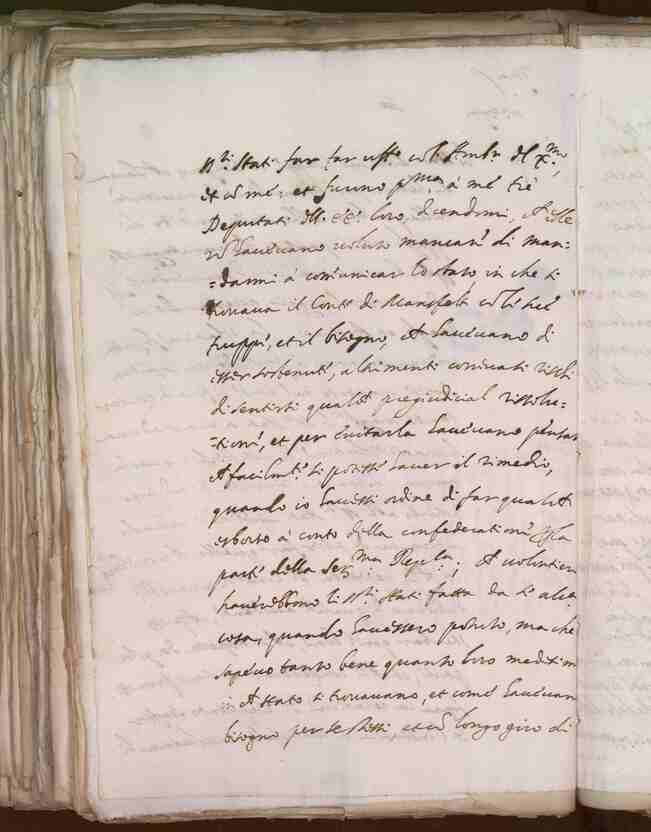 ss.ri Stati far far uff.o co'l s.r Ambr del X.mo
et co' me: et furono p.ma à me tre
Deputati dell. ecc.e loro dicendomi, che
no' haueuano uoluto mancar di man=
=darmi à comunicar lo stato in che si
trouaua il Conte di Mansfelt co' le sue
truppe, et il bisogno, che haueuano di
esser sostenute, altrimenti correuati rischi
di sentirsi qualche pregiudicial rissolu=
=tione, et per euitarla haueuano pensato
che facilm.te si potesse hauer il rimedio,
quando io hauessi ordine di far qualche
esborso à conto della confederatione per la
parte della Ser.ma Rep.ca; che uolentieri
hauerebbono li ss.ri Stati fatta da se alc.a
cosa, quando hauessero potuto, ma che
sapeuo tanto bene quanto loro medesimi
in che stato si trouauano, et come haueuan
bisogno per se stessi et co' longo giro di